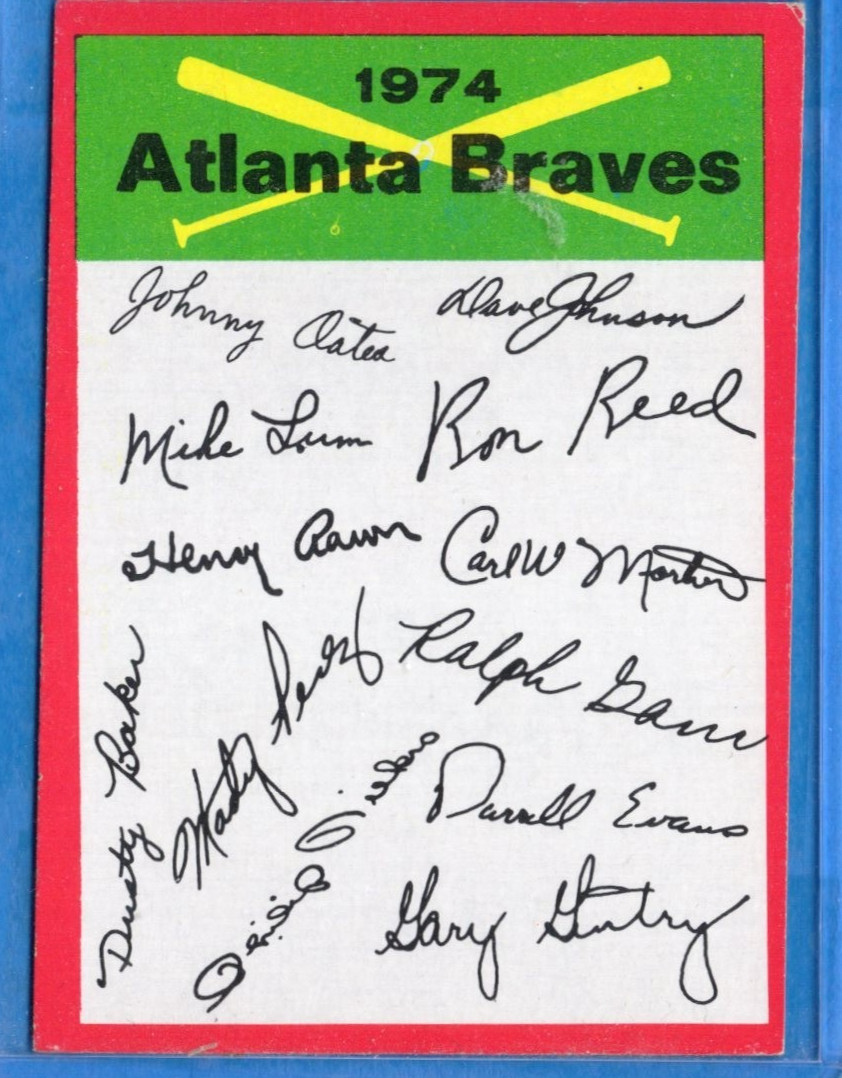 1974
Atlanta Braves
Johnny Oates
Dave Johnson
Mike Lum
Ron Reed
Henry Aaron
Carl W Morton
Dusty Baker
Marty Perez
Ralph Garr
Darrell Evans
Gary Gentry